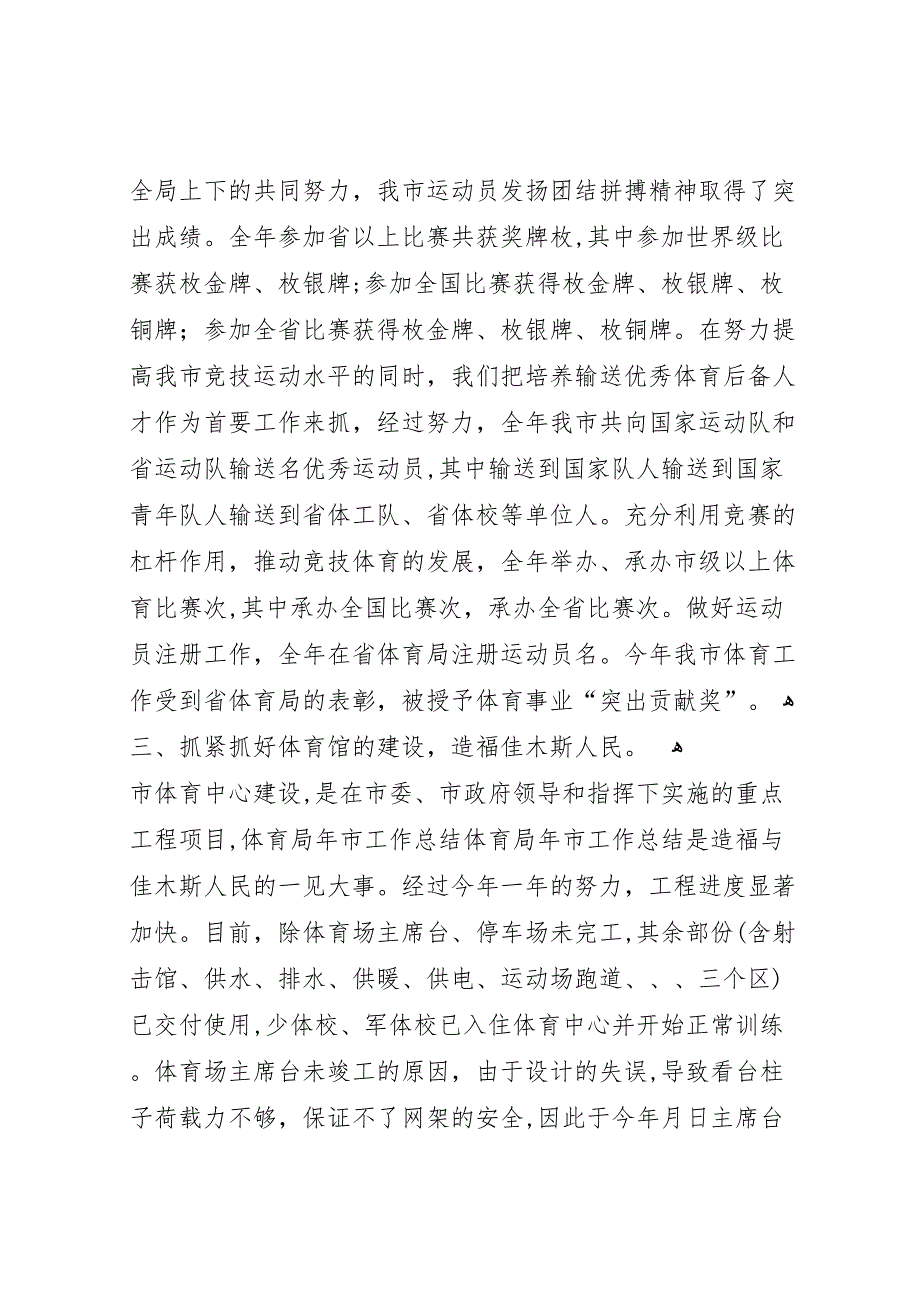 全局上下的共同努力，我市运动员发扬团结拼搏精神取得了突
出成绩。全年参加省以上比赛共获奖牌枚,其中参加世界级比
赛获枚金牌、枚银牌;参加全国比赛获得枚金牌、枚银牌、枚
铜牌；参加全省比赛获得枚金牌、枚银牌、枚铜牌。在努力提
高我市竞技运动水平的同时，我们把培养输送优秀体育后备人
才作为首要工作来抓，经过努力，全年我市共向国家运动队和
省运动队输送名优秀运动员,其中输送到国家队人输送到国家
青年队人输送到省体工队、省体校等单位人。充分利用竞赛的
杠杆作用，推动竞技体育的发展，全年举办、承办市级以上体
育比赛次,其中承办全国比赛次，承办全省比赛次。做好运动
员注册工作，全年在省体育局注册运动员名。今年我市体育工
作受到省体育局的表彰，被授予体育事业“突出贡献奖”。 ﻫ
三、抓紧抓好体育馆的建设，造福佳木斯人民。 ﻫ
市体育中心建设,是在市委、市政府领导和指挥下实施的重点
工程项目,体育局年市工作总结体育局年市工作总结是造福与
佳木斯人民的一见大事。经过今年一年的努力，工程进度显著
加快。目前，除体育场主席台、停车场未完工,其余部份(含射
击馆、供水、排水、供暖、供电、运动场跑道、、、三个区)
已交付使用,少体校、军体校已入住体育中心并开始正常训练
。体育场主席台未竣工的原因，由于设计的失误,导致看台柱
子荷载力不够，保证不了网架的安全,因此于今年月日主席台